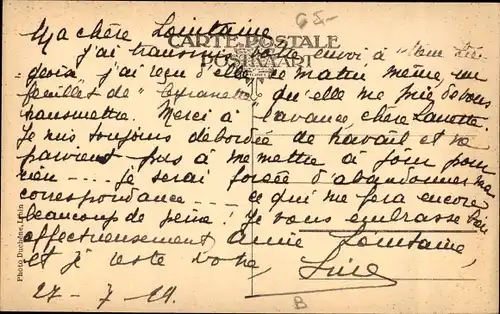 65-
Ma chère Lointaine
CARTE POSTALE
POSTKAART
j'ai transmis votre envoi à
j'ai reçu d'elle ce matin même, un
feuillet de " " qu'elle me prie de vous
transmettre. Merci à l'avance, chère
Je suis toujours débordée de travail et ne
parviens pas à me mettre à jour pour
rien ---- je serai forcée d'abandonner ma
correspondance ---- ce qui me fera encore
beaucoup de peine! Je vous embrasse bien
affectueusement amie Lointaine,
et je reste votre,
27-7-24.
B
Photo Duchêne,